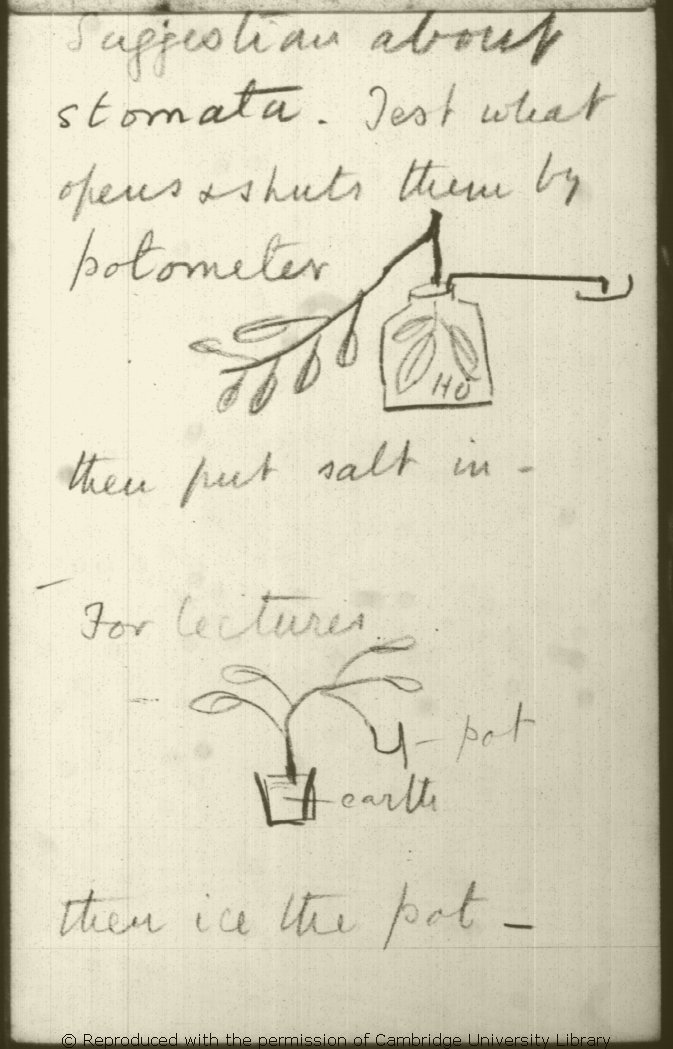 Suggestion about
stomata. Test what
opens & shuts them by
potometer
HO
then put salt in -
For lectures
pot
earth
then ice the pot -
© Reproduced with the permission of Cambridge University Library